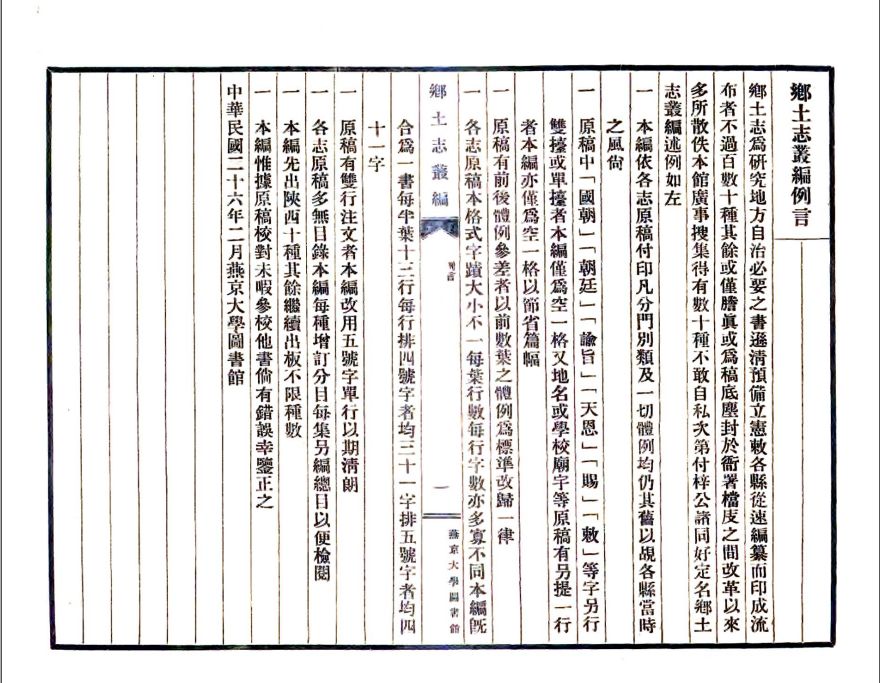 鄉土志叢編例言
鄉土志爲研究地方自治必要之書遜清預備立憲敕各縣從速編纂而印成流
布者不過百數十種其餘或僅謄眞或爲稿底塵封於衙署檔庋之間改革以來
多所散佚本館廣事搜集得有數十種不敢自私次第付梓公諸同好定名鄉土
志叢編述例如左
一 本編依各志原稿付印凡分門別類及一切體例均仍其舊以覘各縣當時
之風尙
一 原稿中「國朝」「朝廷」「諭旨」「天恩」「賜」「敕」等字另行
雙擡或單擡者本編僅爲空一格又地名或學校廟宇等原稿有另提一行
者本編亦僅爲空一格以節省篇幅
一 原稿有前後體例參差者以前數葉之體例爲標準改歸一律
一 各志原稿本格式字蹟大小不一每葉行數每行字數亦多寡不同本編旣
鄉土志叢編
例言
一
燕京大學圖書館
合爲一書每半葉十三行每行排四號字者均三十一字排五號字者均四
十一字
一 原稿有雙行注文者本編改用五號字單行以期淸朗
一 各志原稿多無目錄本編每種增訂分目每集另編總目以便檢閱
一 本編先出陝西十種其餘繼續出板不限種數
一 本編惟據原稿校對未暇參校他書倘有錯誤幸鑒正之
中華民國二十六年二月燕京大學圖書館